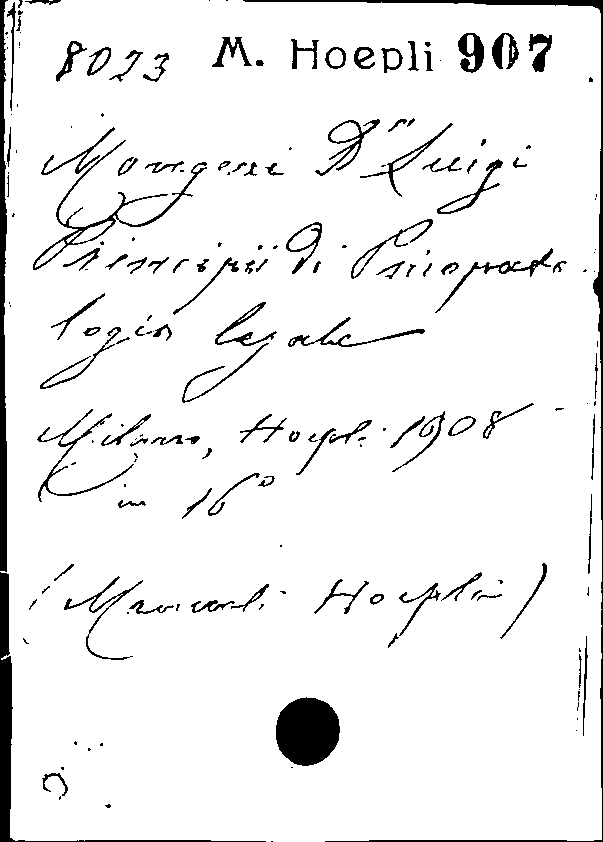 8023 M. Hoepli 907
Mongeri Dr Luigi
Principii di Psicopato
logia legale
Milano, Hoepli 1908
in 16°
(Manuali Hoepli)